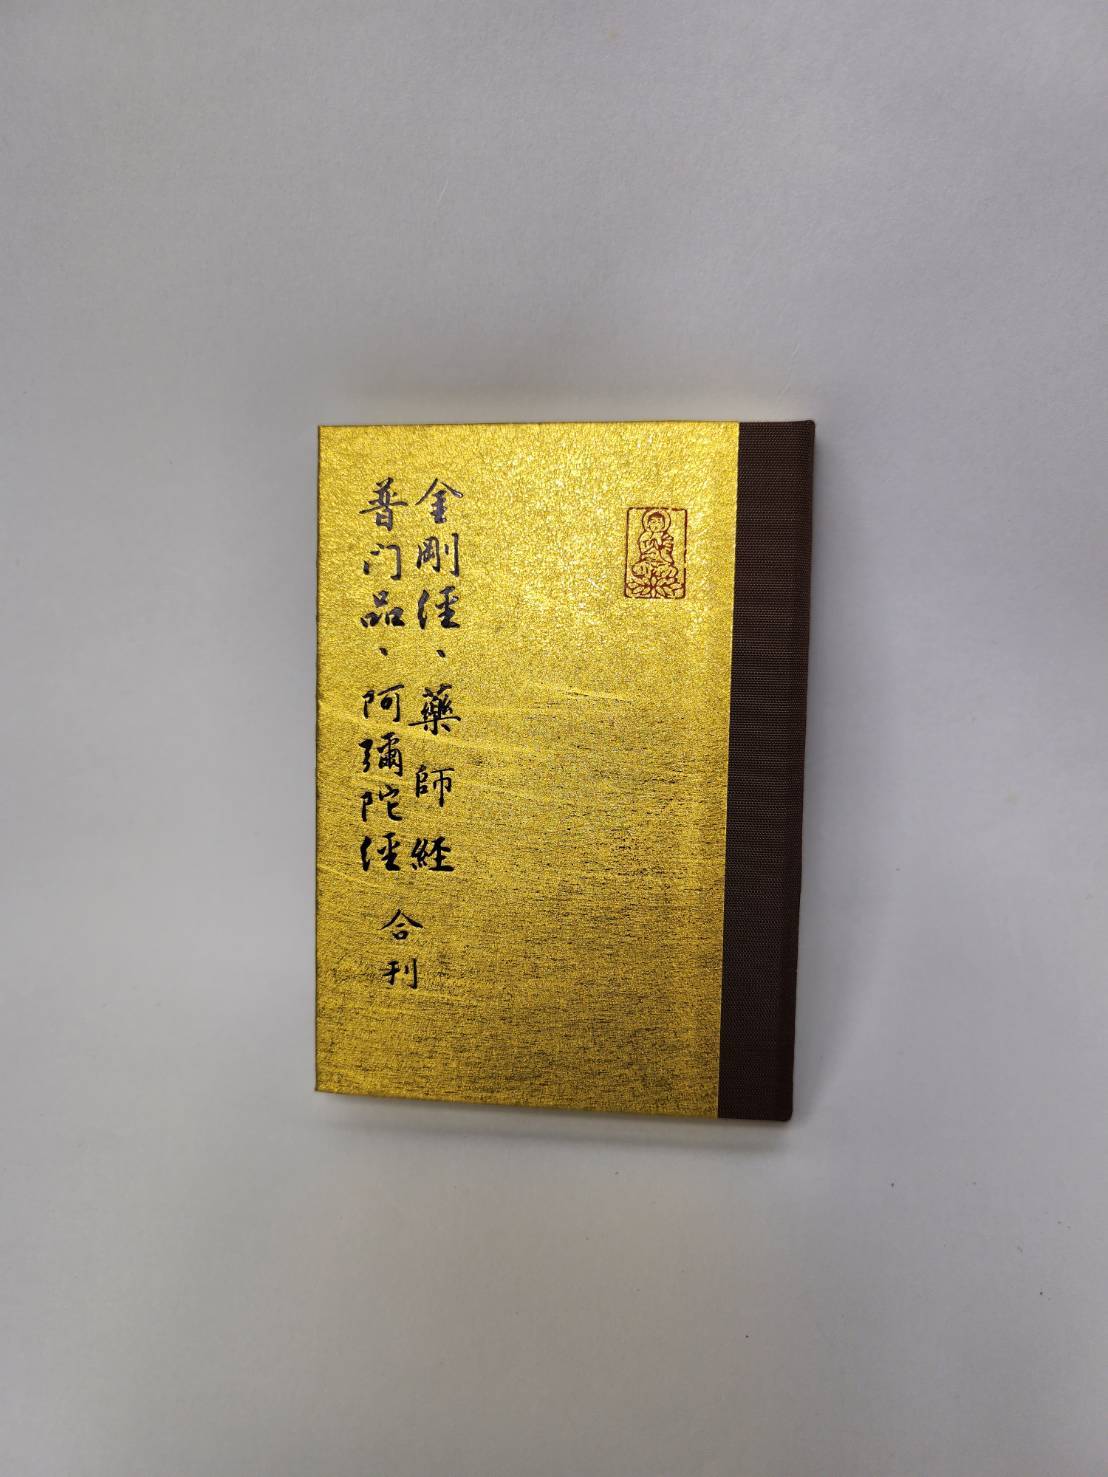 金剛经、藥師經
普门品、阿彌陀经
合刊